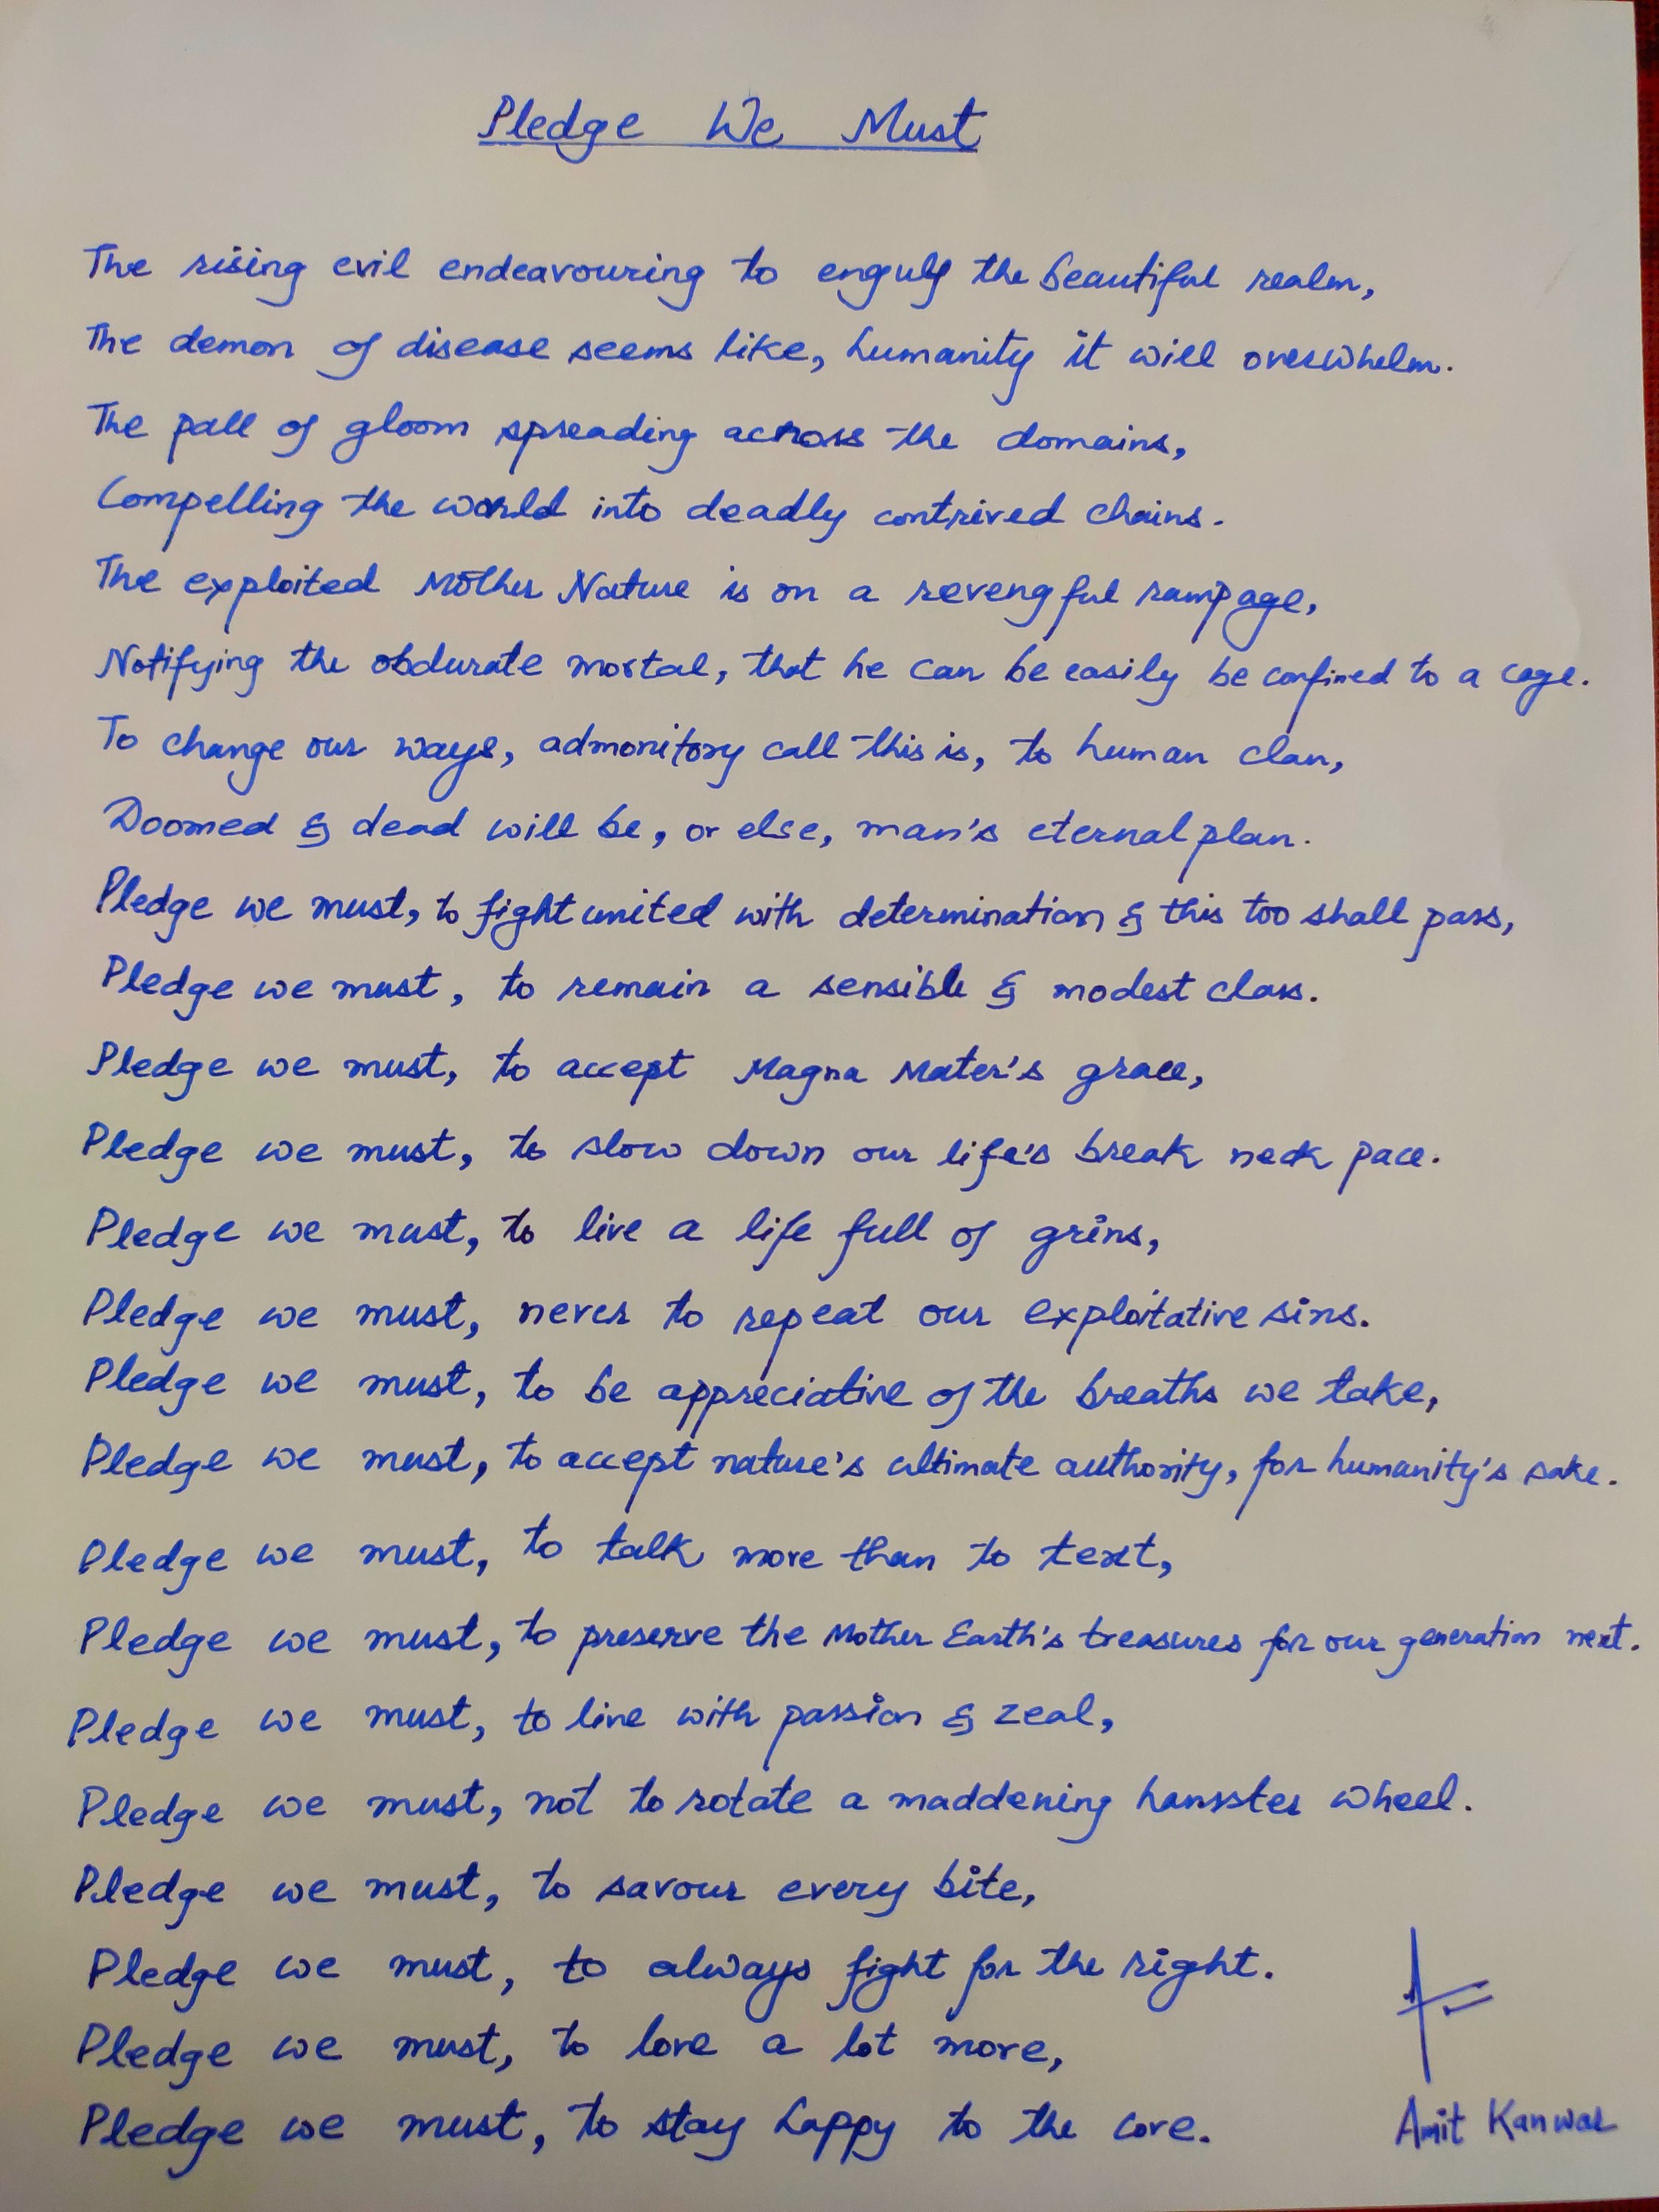 Pledge We Must
The rising evil endeavouring to engulf the beautiful realm,
The demon of disease seems like, humanity it will overwhelm.
The pall of gloom spreading across the domains,
Compelling the world into deadly contrived chains.
The exploited Mother Nature is on a revengful rampage,
Notifying the obdurate mortal, that he can be easily be confined to a cage.
To change our ways, admonitory call this is, to human clan,
Doomed & dead will be, or else, man's eternal plan.
Pledge we must, to fight united with determination & this too shall pass,
Pledge we must, to remain a sensible & modest class.
Pledge we must, to accept Magna Mater's grace,
Pledge we must, to slow down our life's break neck pace.
Pledge we must, to live a life full of grins,
Pledge we must, never to repeat our exploitative sins.
Pledge we must, to be appreciative of the breaths we take,
Pledge we must, to accept nature's ultimate authority, for humanity's sake.
Pledge we must, to talk more than to text,
Pledge we must, to preserve the Mother Earth's treasures for our generation next.
Pledge we must, to live with passion & zeal,
Pledge we must, not to rotate a maddening hamster wheel.
Pledge we must, to savour every bite,
Pledge we must, to always fight for the right.
Pledge we must, to love a lot more,
Pledge we must, to stay happy to the core.
Amit Kanwar